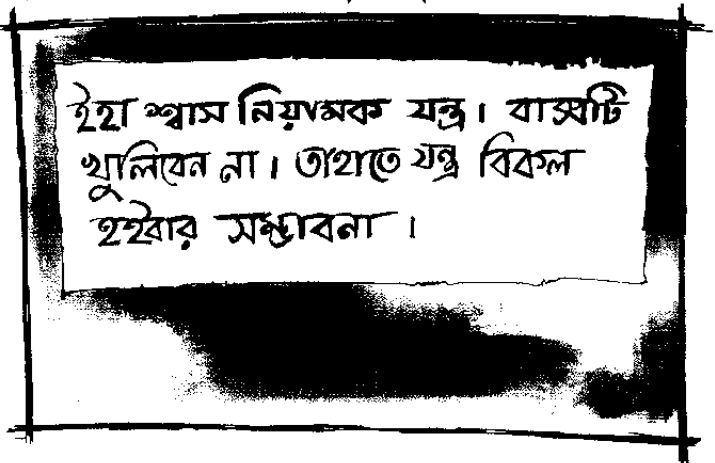 ইহা শ্বাস নিয়ামক যন্ত্র। বাক্সটি
খুলিবেন না। তাহাতে যন্ত্র বিকল
হইবার সম্ভাবনা।